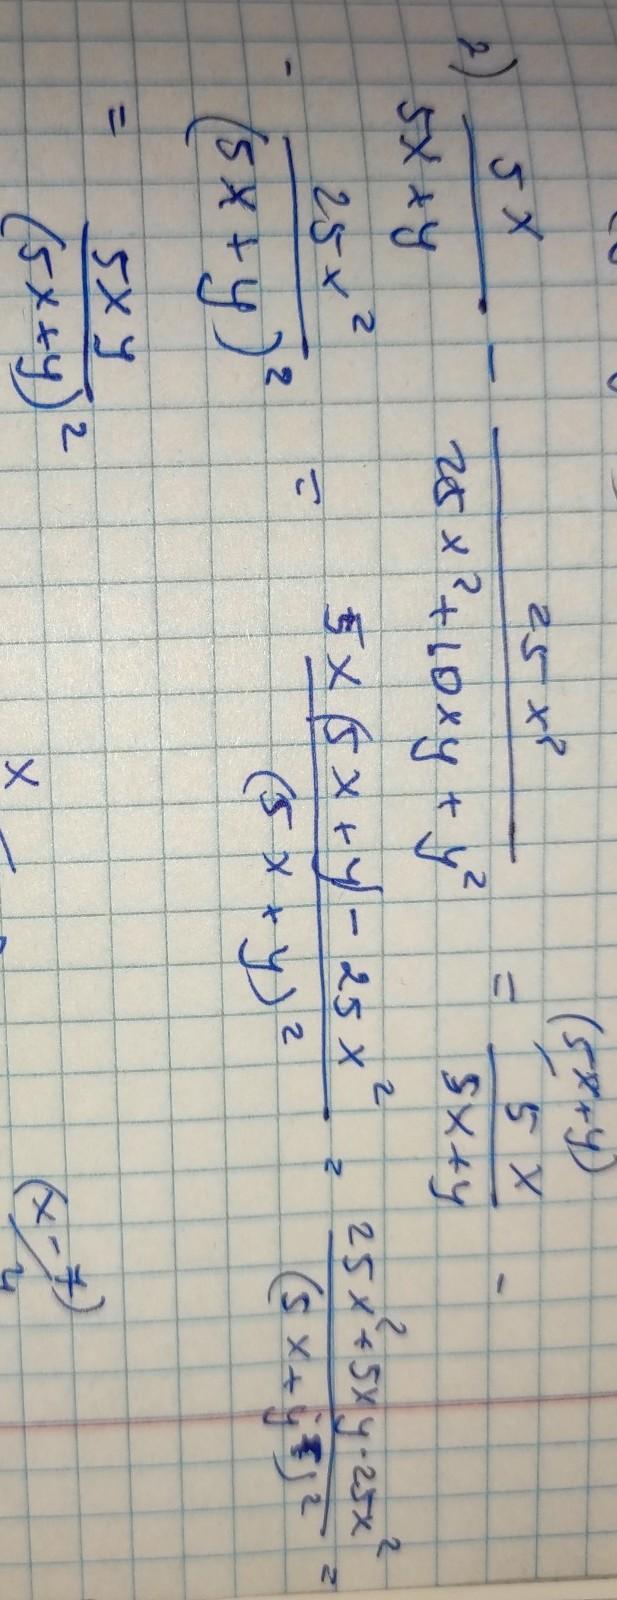 2) 5x/(5x+y) - 25x²/(25x²+10xy+y²) = 5x/(5x+y) (5x+y) -
- 25x²/(5x+y)² = (5x(5x+y) - 25x²)/(5x+y)² = (25x²+5xy-25x²)/(5x+y)² =
= 5xy/(5x+y)²
x
(x-7)